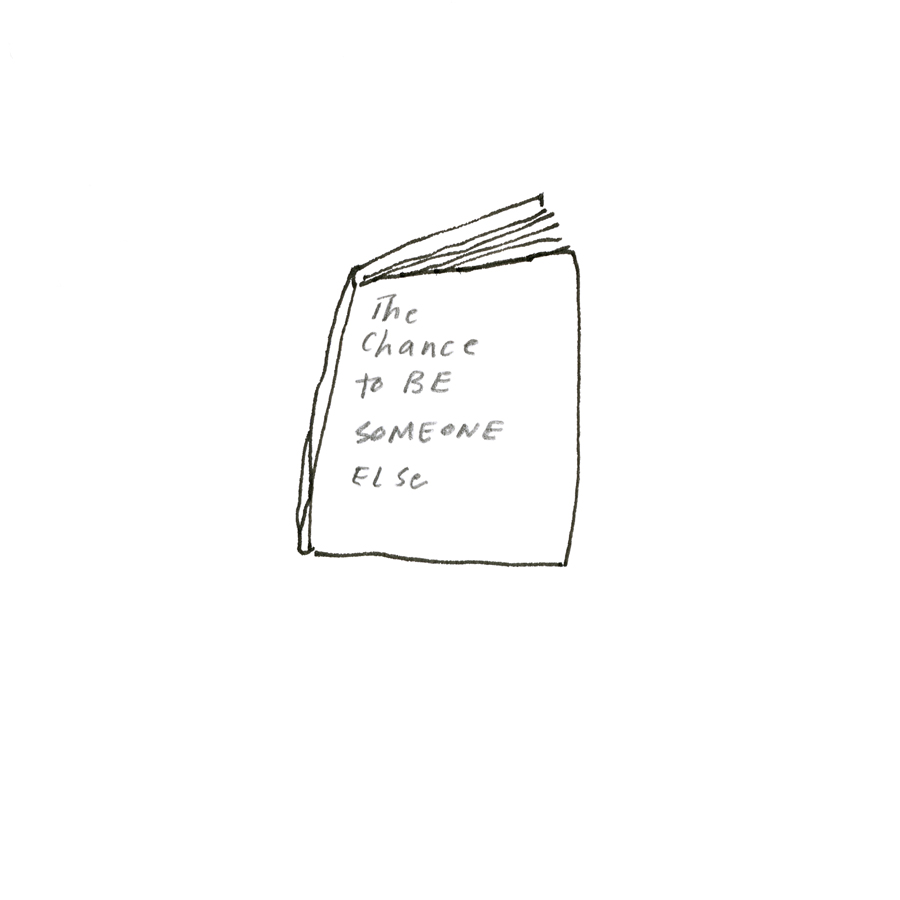 The
Chance
to BE
SOMEONE
ELSe